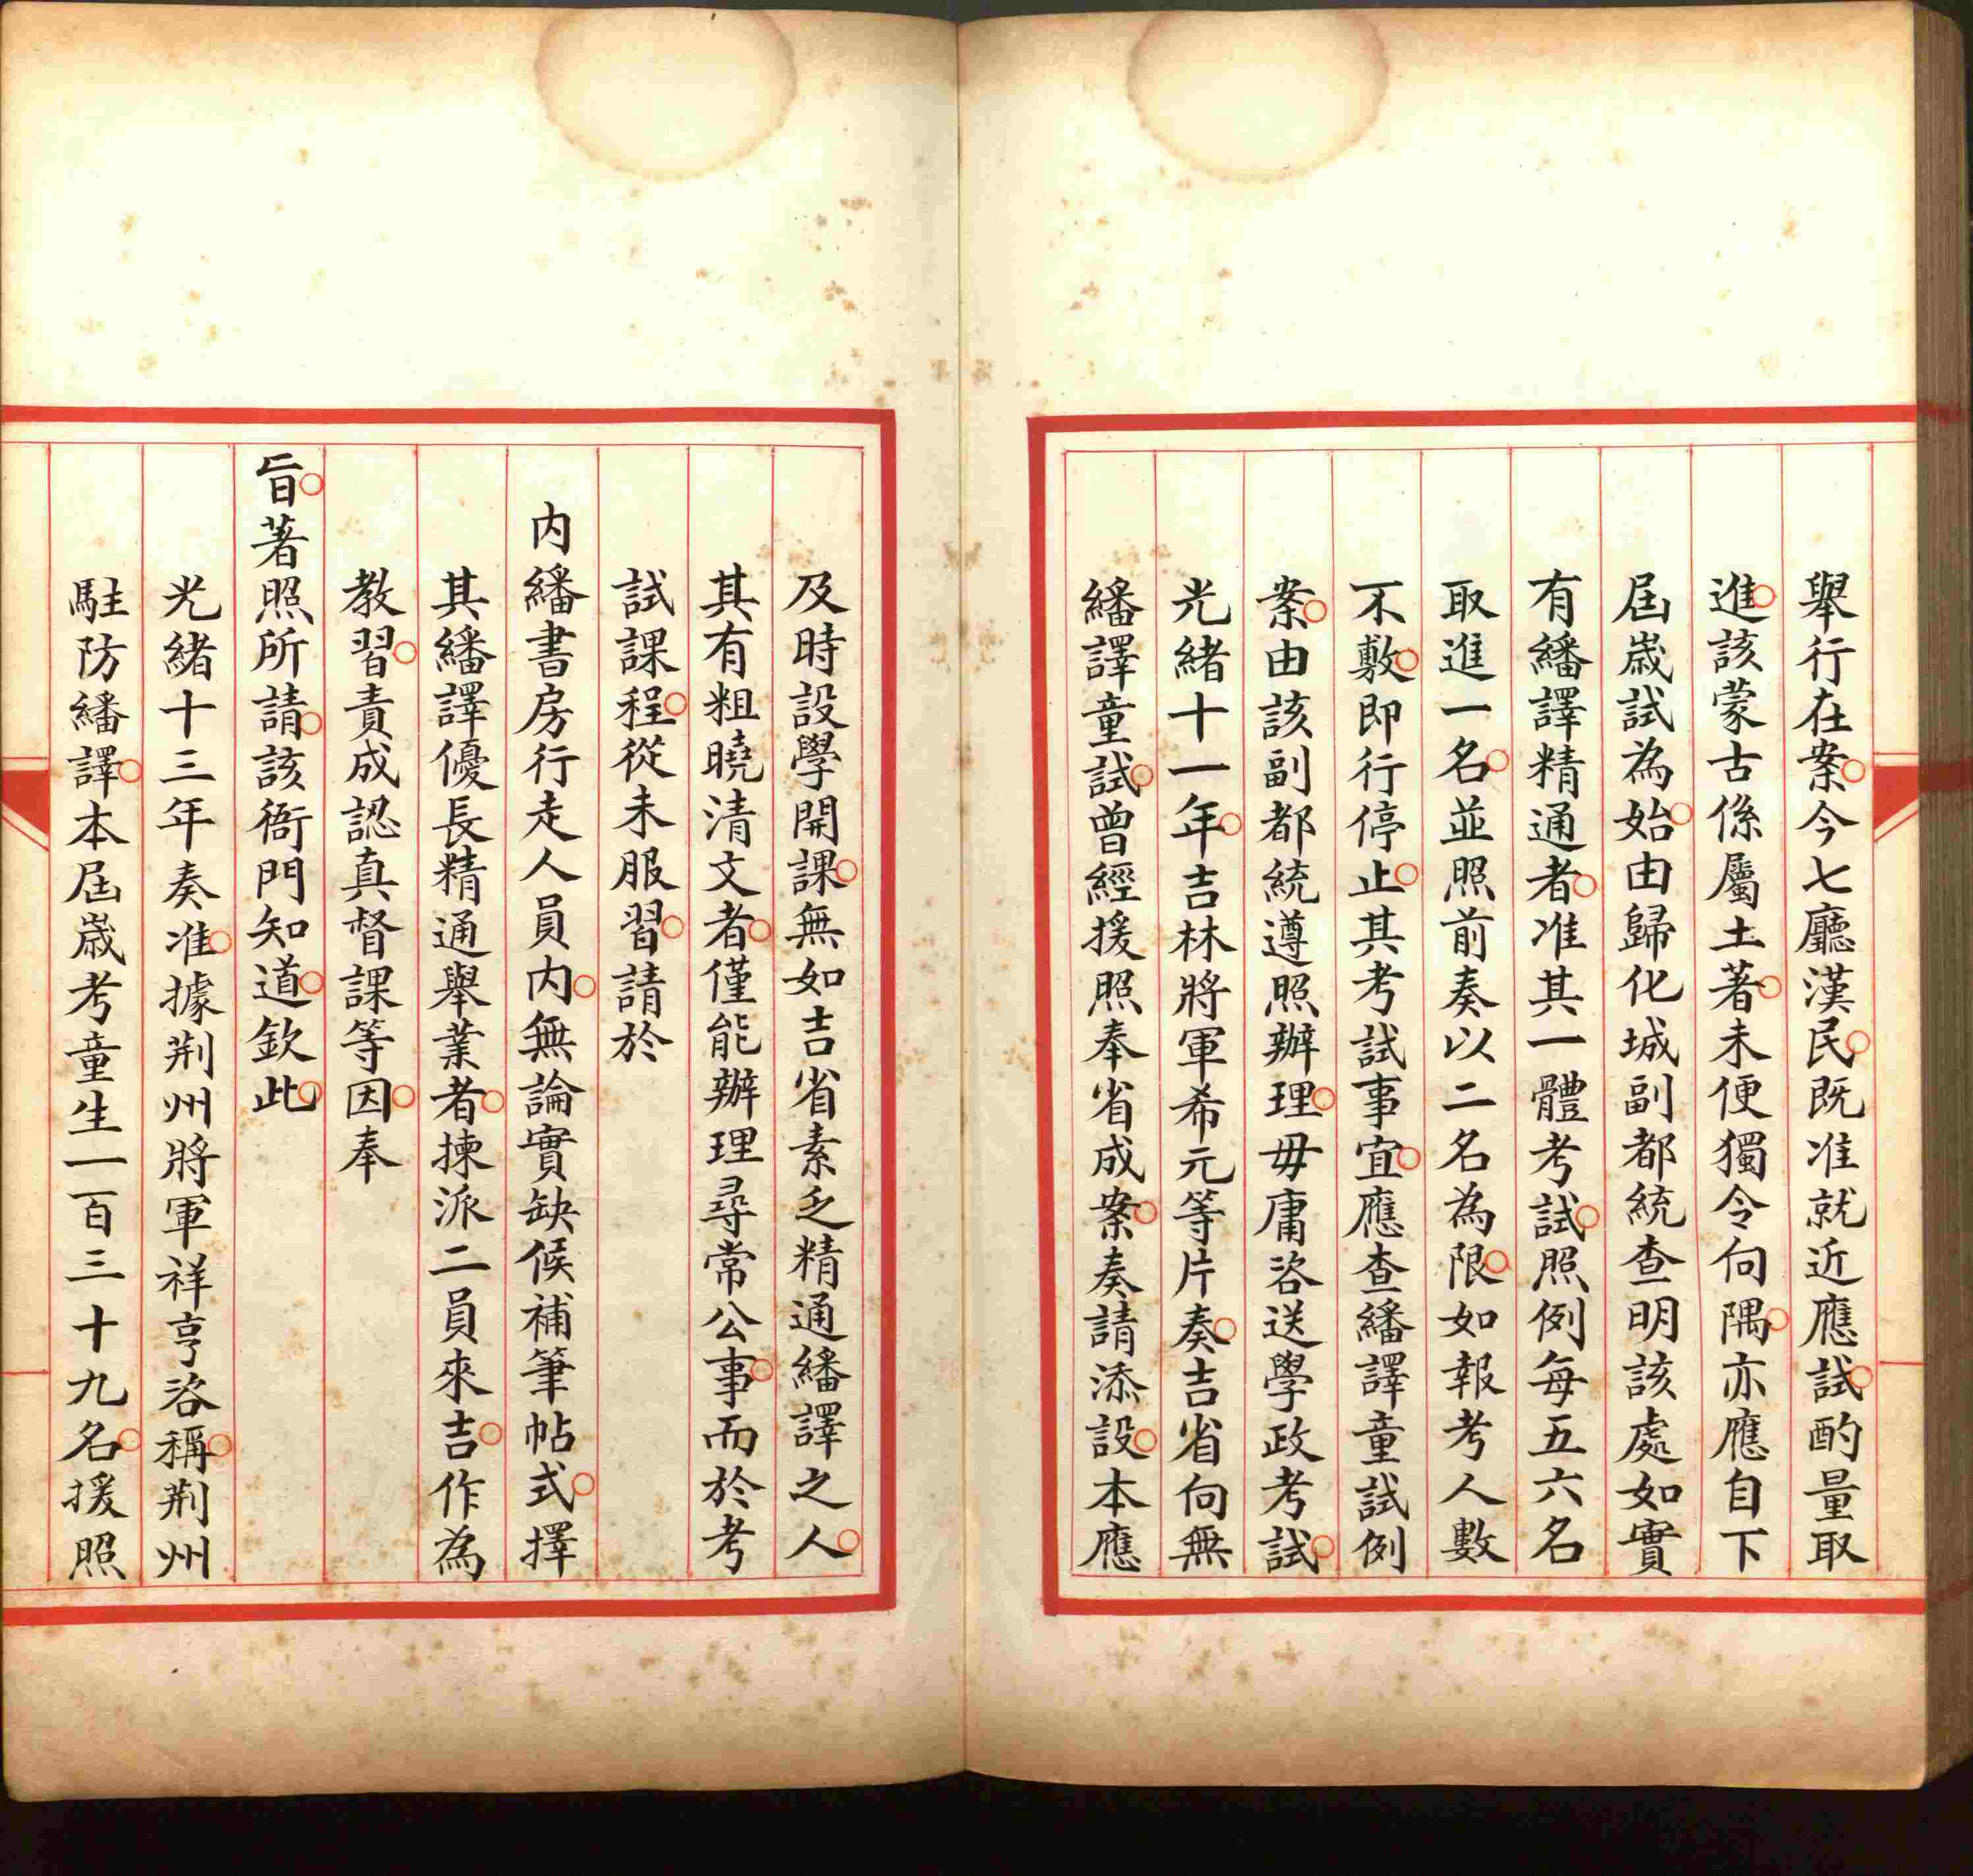 舉行在案今七廳漢民既准就近應試酌量取
進該蒙古係屬土著未便獨令向隅亦應自下
屆歲試為始由歸化城副都統查明該處如實
有繙譯精通者准其一體考試照例每五六名
取進一名並照前奏以二名為限如報考人數
不敷即行停止其考試事宜應查繙譯童試例
案由該副都統遵照辦理毋庸咨送學政考試
光緒十一年吉林將軍希元等片奏吉省向無
繙譯童試曾經援照奉省成案奏請添設本應
及時設學開課無如吉省素乏精通繙譯之人
其有粗曉清文者僅能辦理尋常公事而於考
試課程從未服習請於
内繙書房行走人員内無論實缺候補筆帖式擇
其繙譯優長精通舉業者揀派二員來吉作為
教習責成認真督課等因奉
旨著照所請該衙門知道欽此
光緒十三年奏准據荊州將軍祥亨咨稱荊州
駐防繙譯本屆歲考童生一百三十九名援照